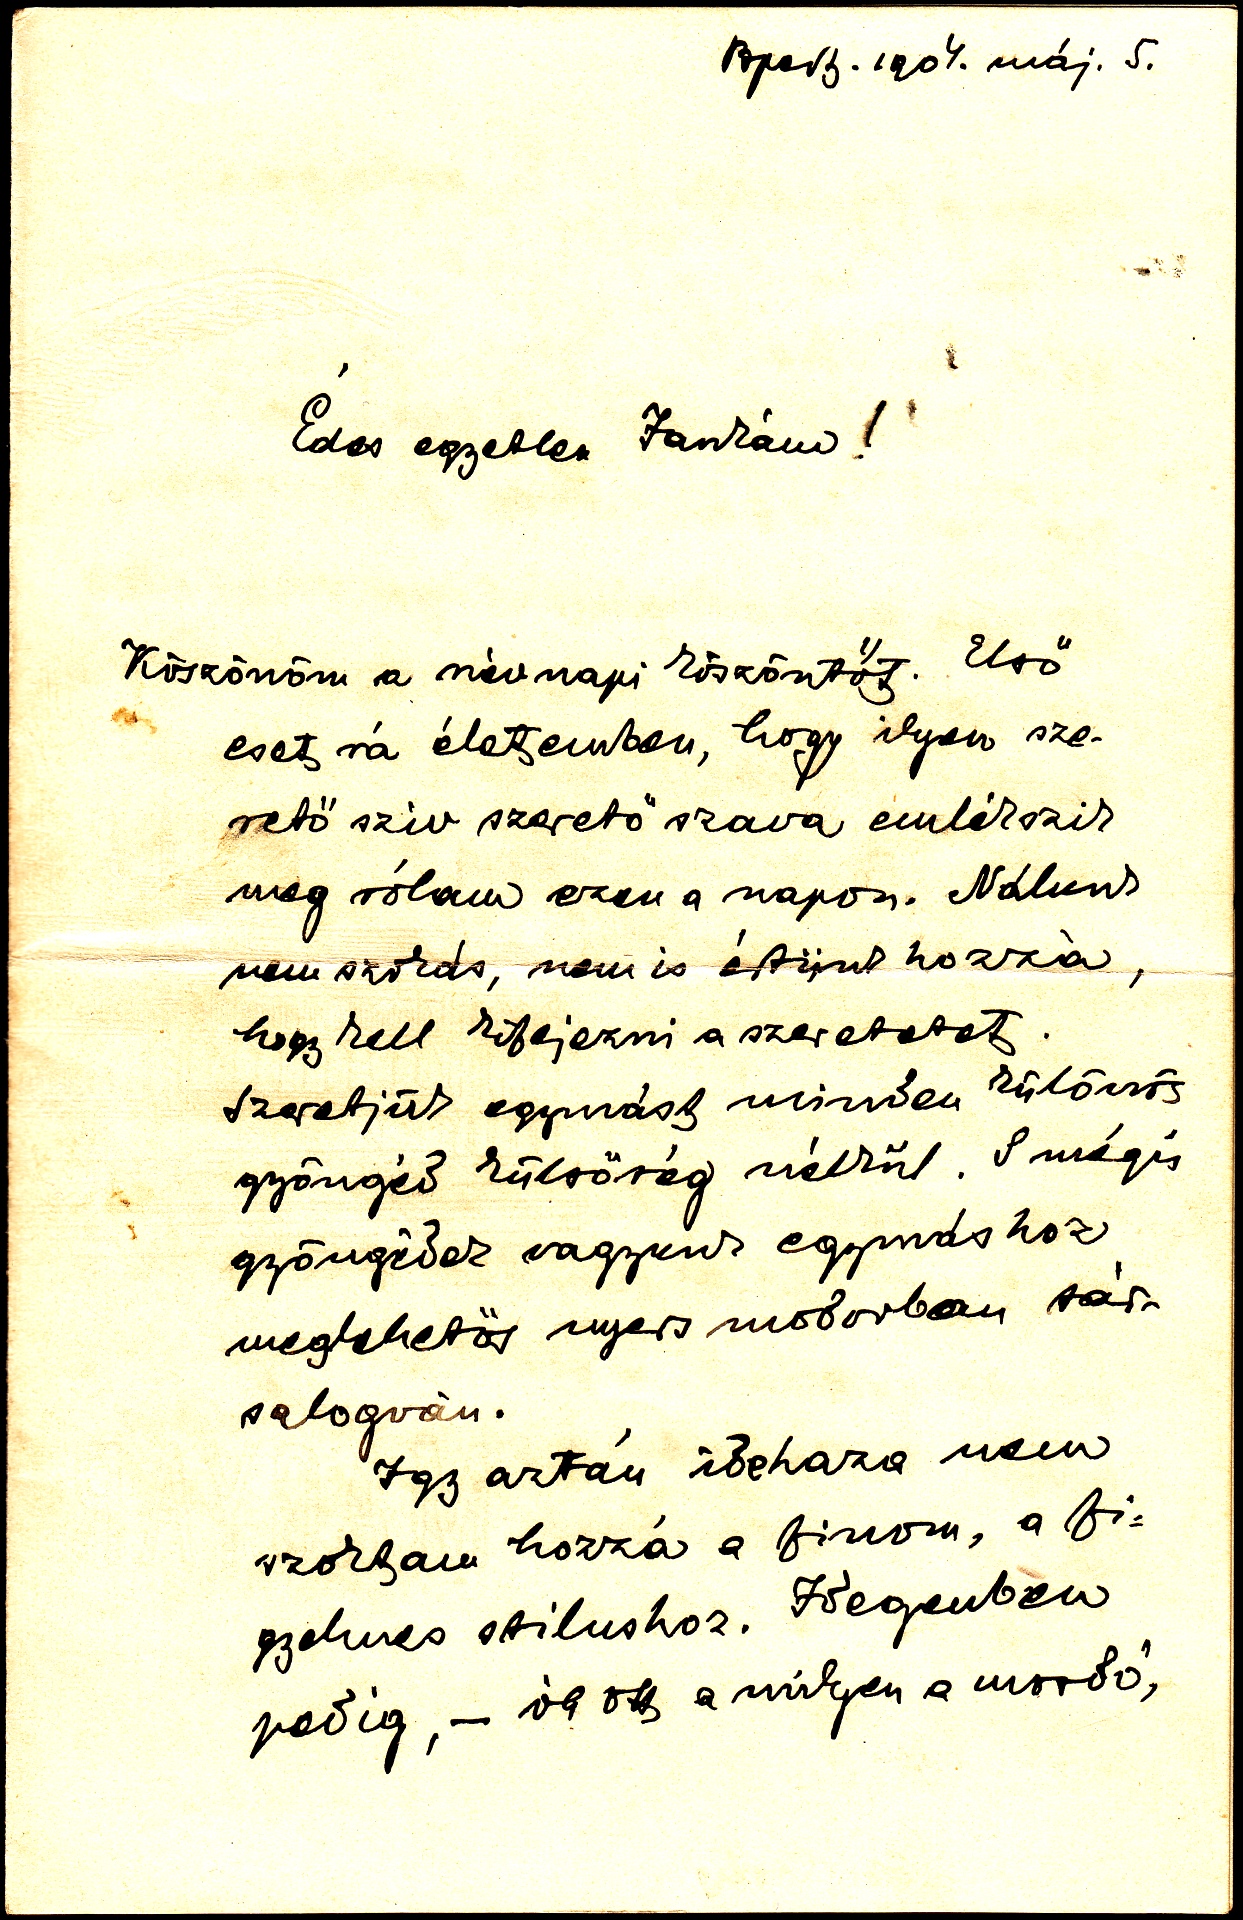 Bpest. 1904. máj. 5.
Édes egyetlen Jankám!
Köszönöm a névnapi köszöntőt. Első
eset rá életemben, hogy ilyen sze-
rető sziv szerető szava emlékszik
meg rólam ezen a napon. Nálunk
nem szokás, nem is értünk hozzá,
hogy kell kifejezni a szeretetet.
Szeretjük egymást minden különös
gyöngéd külsőség nélkül. S mégis
gyöngédek vagyunk egymáshoz
meglehetős nyers modorban tár-
salogván.
Igy aztán idehaza nem
szoktam hozzá a finom, a fi=
gyelmes stilushoz. Idegenben
pedig, – ott a milyen a mosdó,